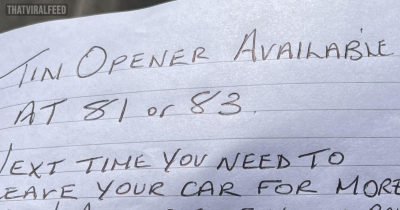 THATVIRALFEED
TIN OPENER AVAILABLE
AT 81 or 83.
NEXT TIME YOU NEED TO
LEAVE YOUR CAR FOR MORE